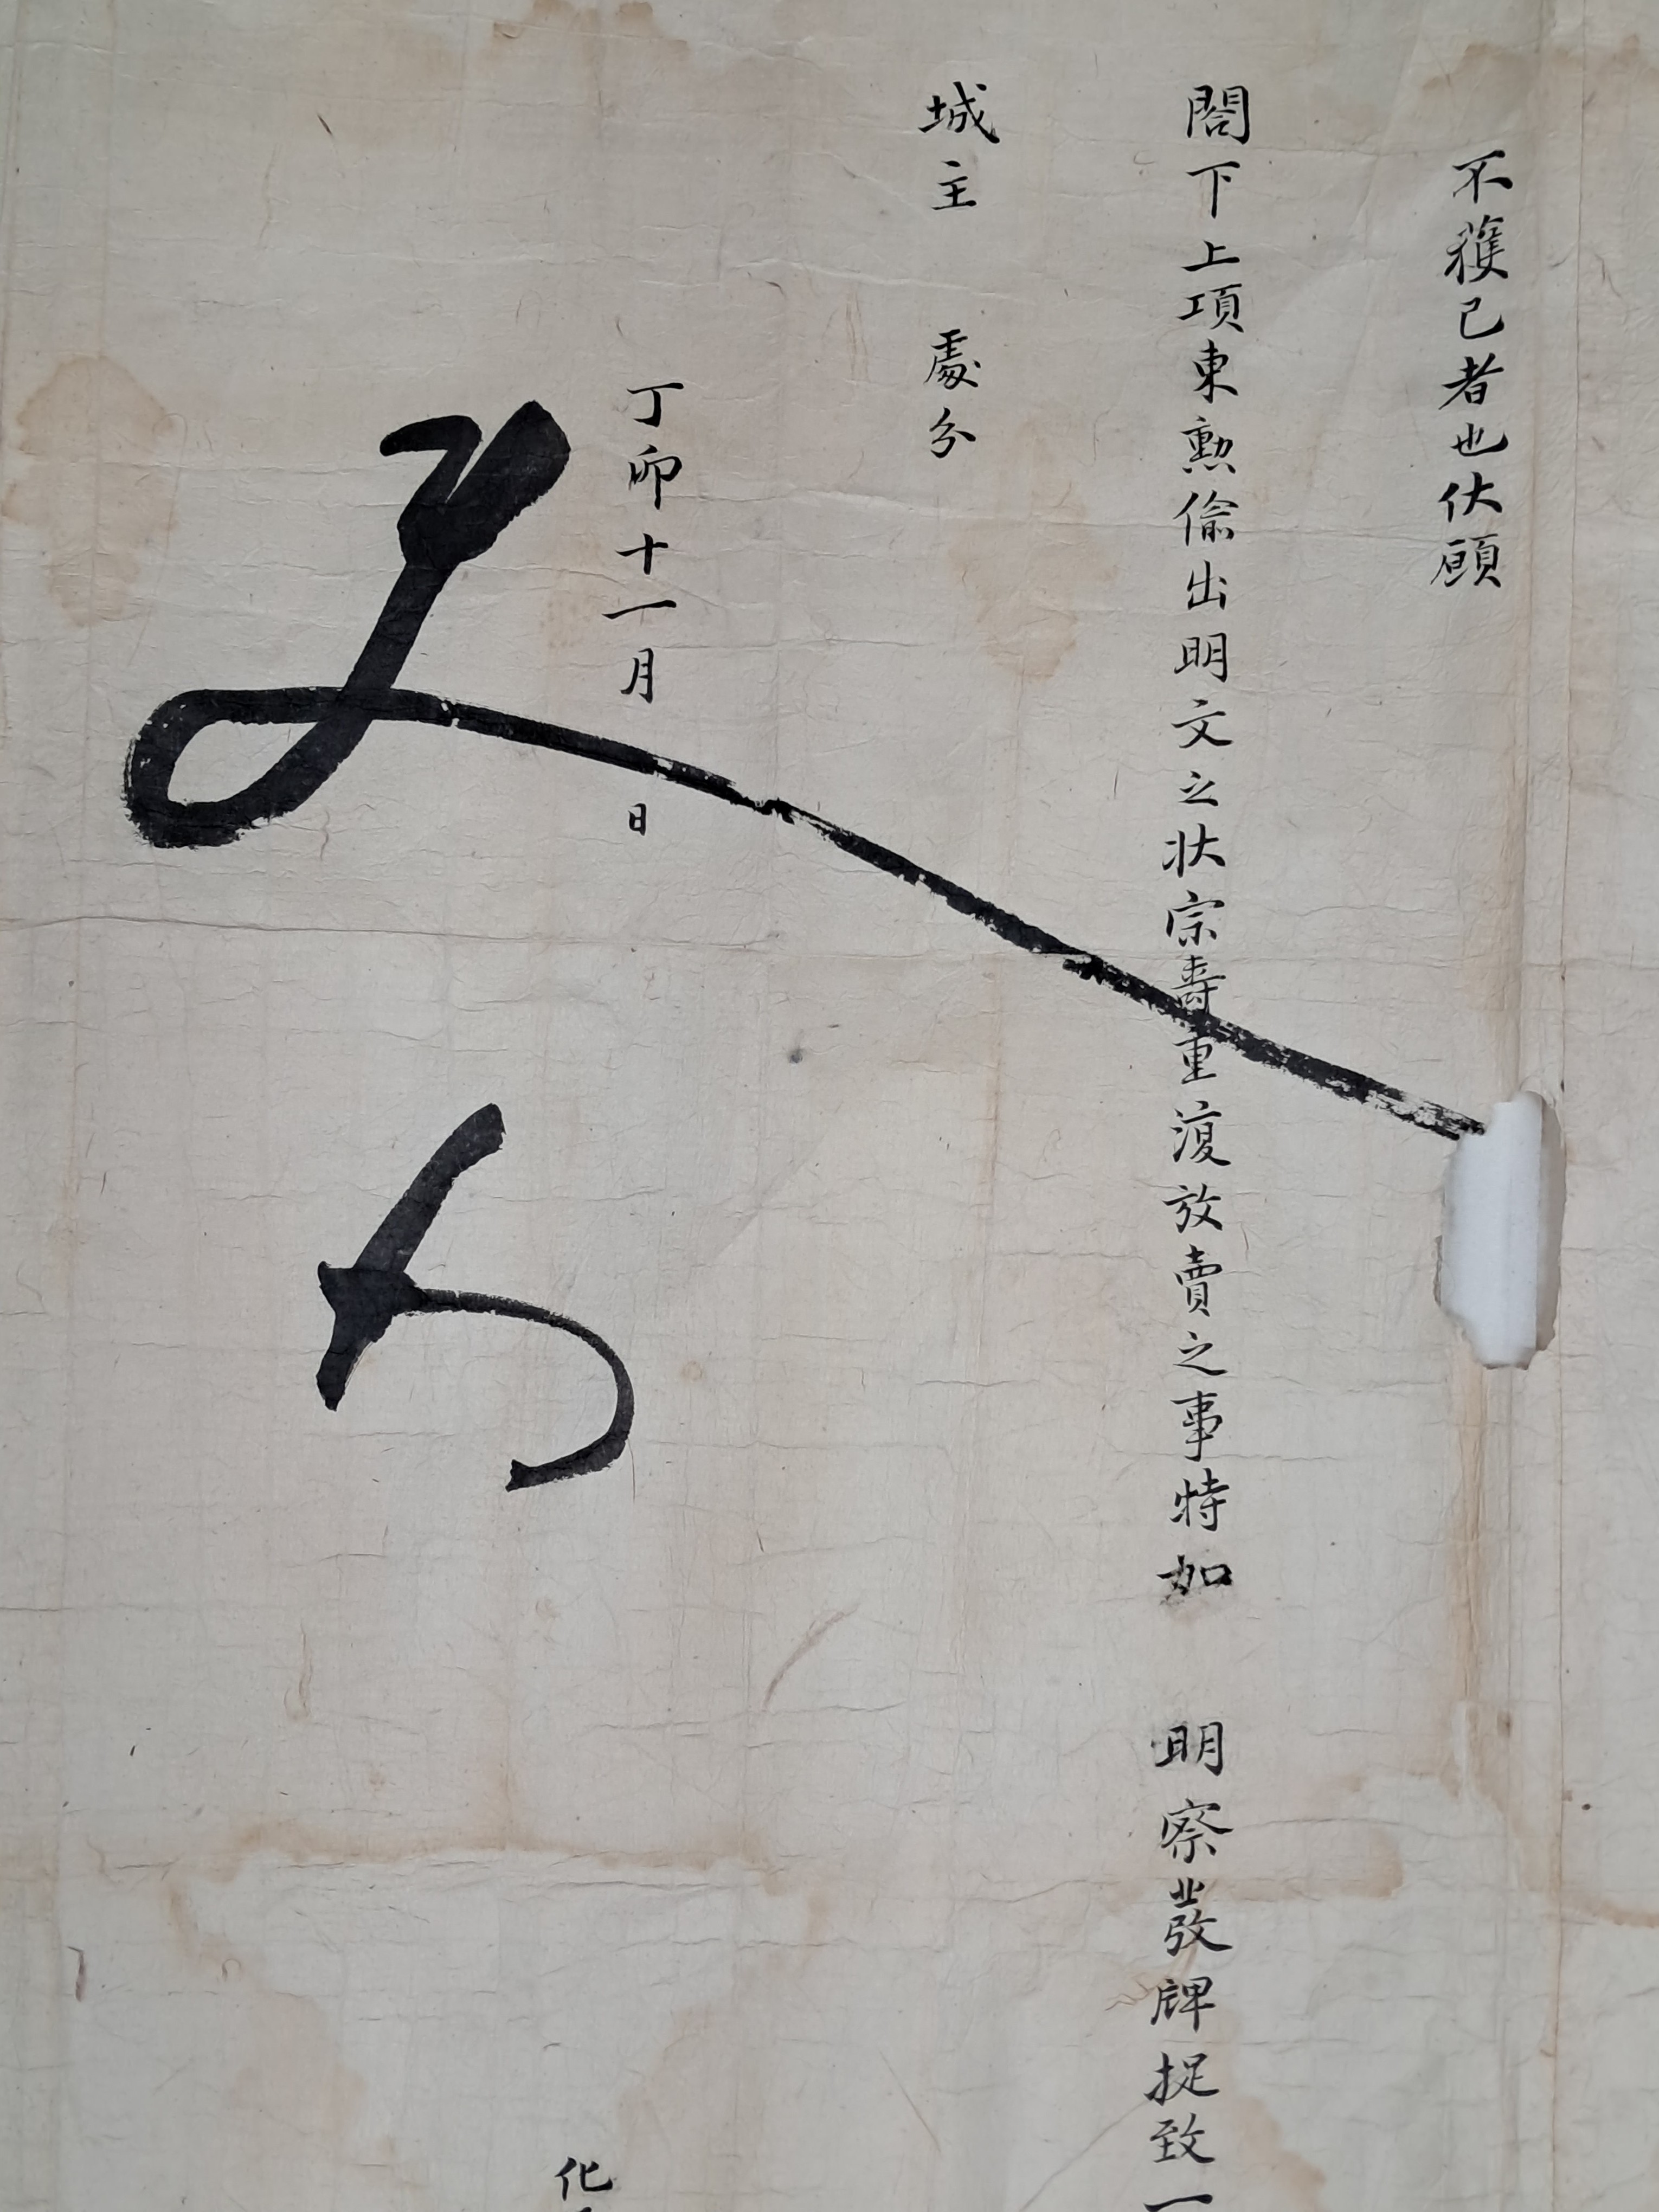 不獲已者也伏願
閤下上項東勲偷出明文之狀宗壽重復放賣之事特如 明察發牌捉致一
城主 處分
丁卯十一月 日
化